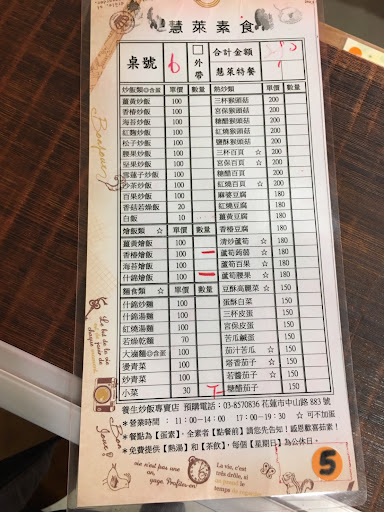 慧萊素食
桌號 6 □外帶 合計金額
慧萊特餐
炒飯類◎含蛋 單價 數量 熱炒類 單價 數量
薑黃炒飯 100 三杯猴頭菇 200
香椿炒飯 100 宮保猴頭菇 200
海苔炒飯 100 糖醋猴頭菇 200
紅麴炒飯 100 紅燒猴頭菇 200
松子炒飯 100 鹽酥猴頭菇 200
腰果炒飯 100 三杯百頁 ☆ 200
堅果炒飯 100 宮保百頁 ☆ 200
雪蓮子炒飯 100 糖醋百頁 200
沙茶炒飯 100 紅燒百頁 ☆ 200
百果炒飯 100 麻婆豆腐 180
香菇若燥飯 20 紅燒豆腐 180
白飯 10 薑黃豆腐 180
燴飯類 ☆ 單價 數量 香椿豆腐 180
薑黃燴飯 100 清炒蘆筍 ☆ 180
香椿燴飯 100 一 蘆筍蒟蒻 ☆ 180
海苔燴飯 100 蘆筍百果 ☆ 180
什錦燴飯 100 一 蘆筍腰果 ☆ 180
麵食類 ☆ 單價 數量 豆酥高麗菜 ☆ 150
什錦炒麵 100 蛋酥白菜 150
什錦湯麵 100 三杯皮蛋 150
紅燒湯麵 100 宮保皮蛋 150
若燥乾麵 70 苦瓜鹹蛋 150
大滷麵◎含蛋 100 茄汁苦瓜 ☆ 150
燙青菜 100 塔香茄子 ☆ 150
炒青菜 100 若醬茄子 ☆ 150
小菜 30 糖醋茄子 150
養生炒飯專賣店 預購電話:03-8570836 花蓮市中山路 883 號
*營業時間 : 11:00-14:00、17:00-19:30 ☆可不加蛋
*餐點為【蛋素】,全素者【點餐前】請您先告知!感恩歡喜菇素!
*免費提供【熱湯】和【茶飲】,每個【星期日】為公休日。
5